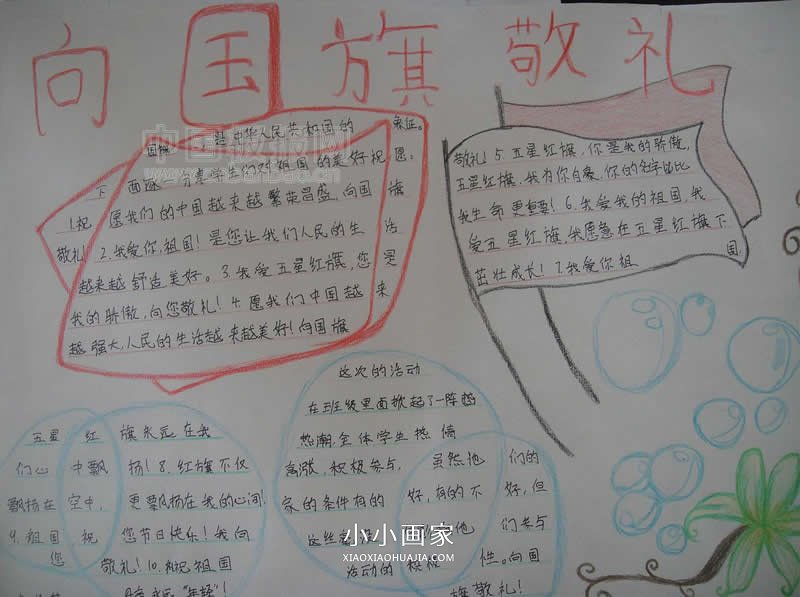 向国旗敬礼
中国板报网
国旗 是中华人民共和国的 象征。
下面 分享学生们对祖国的美好祝愿:
1.祝愿我们的中国越来越繁荣昌盛,向国旗
敬礼! 2.我爱你,祖国!是您让我们人民的生活
越来越舒适美好。3.我爱五星红旗,您是
我的骄傲,向您敬礼! 4.愿我们中国越来
越强大,人民的生活越来越美好!向国旗
敬礼! 5.五星红旗,你是我的骄傲,
五星红旗,我为你自豪,你的名字比
我生命更重要! 6.我爱我的祖国,我
爱五星红旗,我愿意在五星红旗下
茁壮成长! 7.我爱你祖国
五星红旗永远在我
们心中飘扬! 8.红旗不仅
飘扬在空中,更飘扬在我的心间.
9.祖国祝您节日快乐!我向
您敬礼! 10. 祝祖国
"年轻"!
这次的活动
在班级里面掀起了一阵
热潮,全体学生热情
高涨,积极参与,虽然他们的
家的条件有的好,有的不好,但
这些 他们参与
活动的积极性。向国
旗敬礼!
小小画家
XIAOXIAOHUAJIA.COM